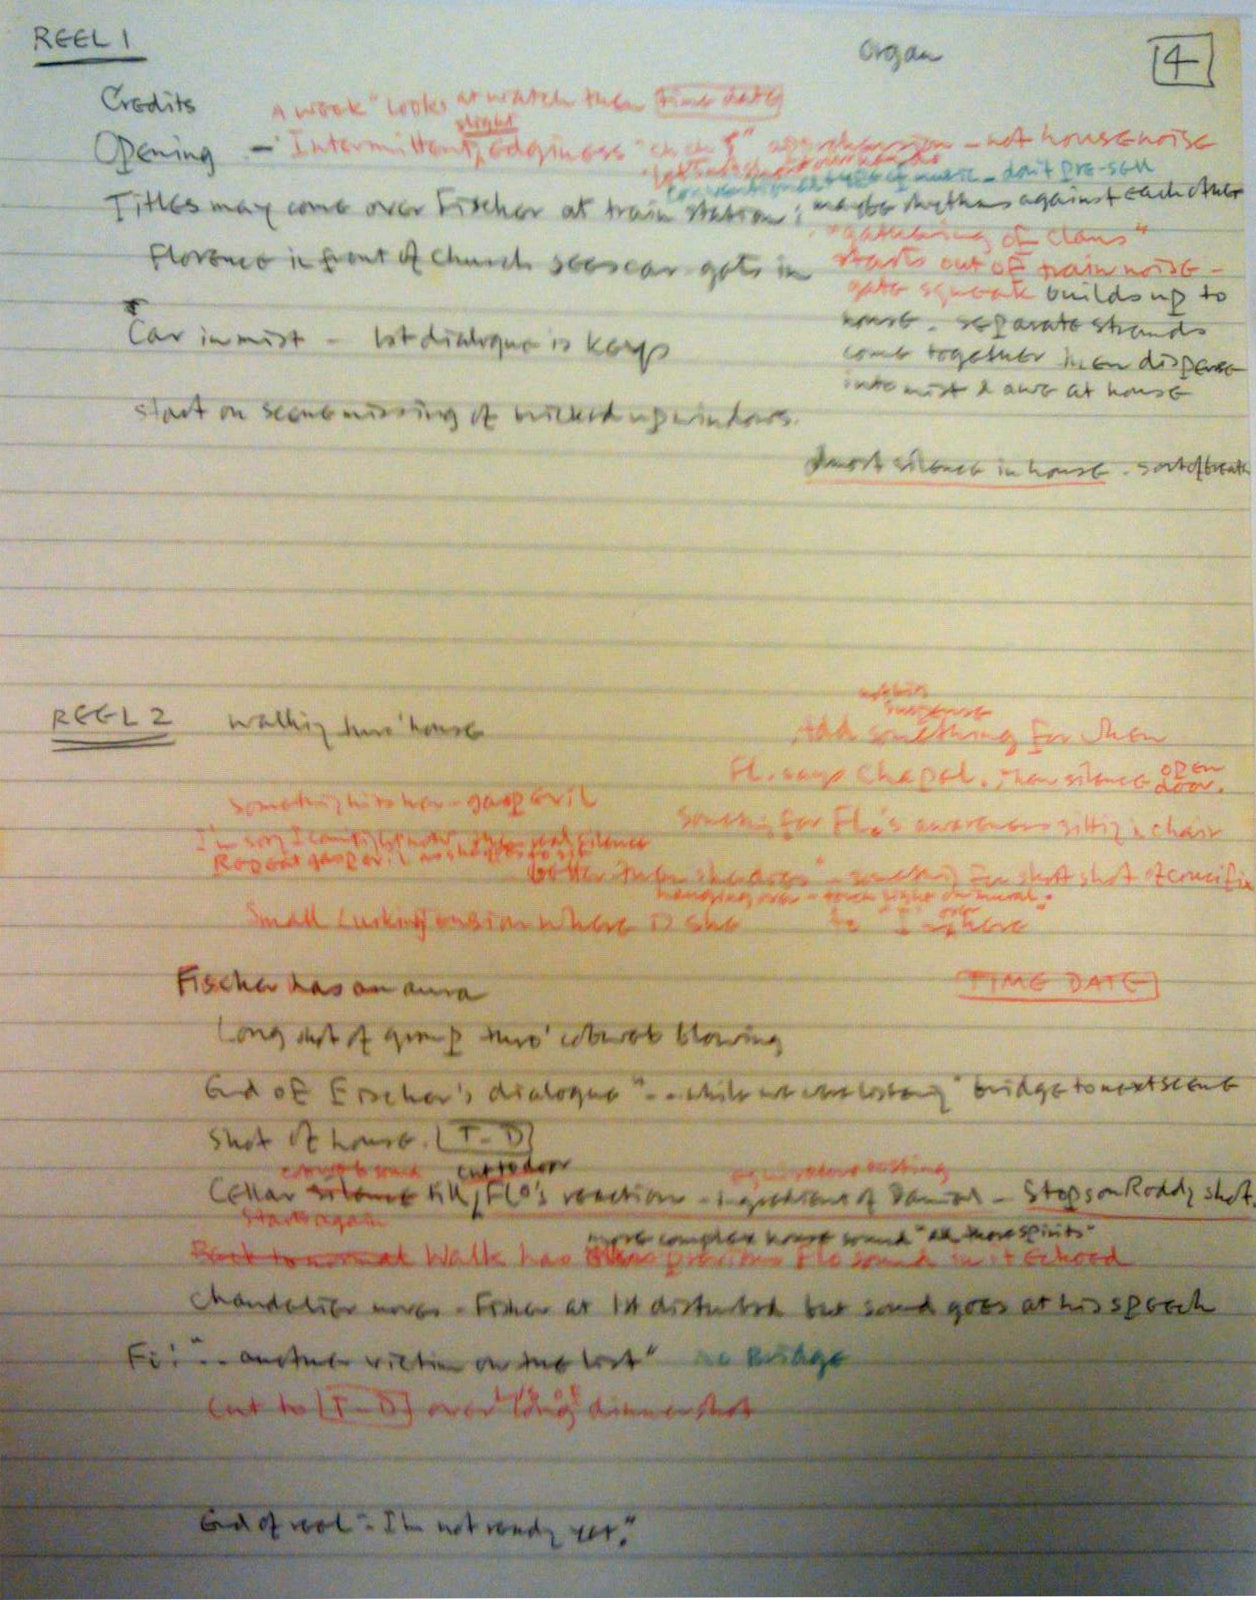 REEL 1
Organ
4
Credits
A week" Looks at watch then time date
slight
Opening - Intermittent, edginess apprehension - not house noise
music - don't pre-sell
Titles may come over Fischer at train station; maybe rhythms against each other
"gathering of clans"
Florence in front of church sees car gets in
starts out of train noise -
gate squeak builds up to
house. separate strands
Car in mist - 1st dialogue is keys
come together then disperse
into mist & awe at house
start on scene missing of bricked up windows.
Almost silence in house. sort of breath
REEL 2 walking thro' house
suspense
Add something for when
Fl. says Chapel. Then silence open
door.
Something hits her - gasp evil
Something for Flo's awareness sitting in chair
I'm sorry I can't, real silence
Repeat gasp evil as she
better than she does" - something for shot of crucifix
hanging over - touch right on mural.
Small lurking tension where is she to "I over here"
Fischer has an aura
TIME DATE
Long shot of group thro' cobweb blowing
End of Fischer's dialogue "-- while we were listening" bridge to next scene
Shot of house. T-D
cut to door
Cellar silence till / Flo's reaction - ingredient of Daniel - Stops on Roddy shot.
Starts again
more complex house sound "all those spirits"
Back to normal Walk has previous Flo sound in it echoed
Chandelier moves - Fisher at 1st disturbed but sound goes at his speech
Fi: "-- another victim on the list" no Bridge
Cut to T-D over long dinner shot
End of reel "I'm not ready yet."